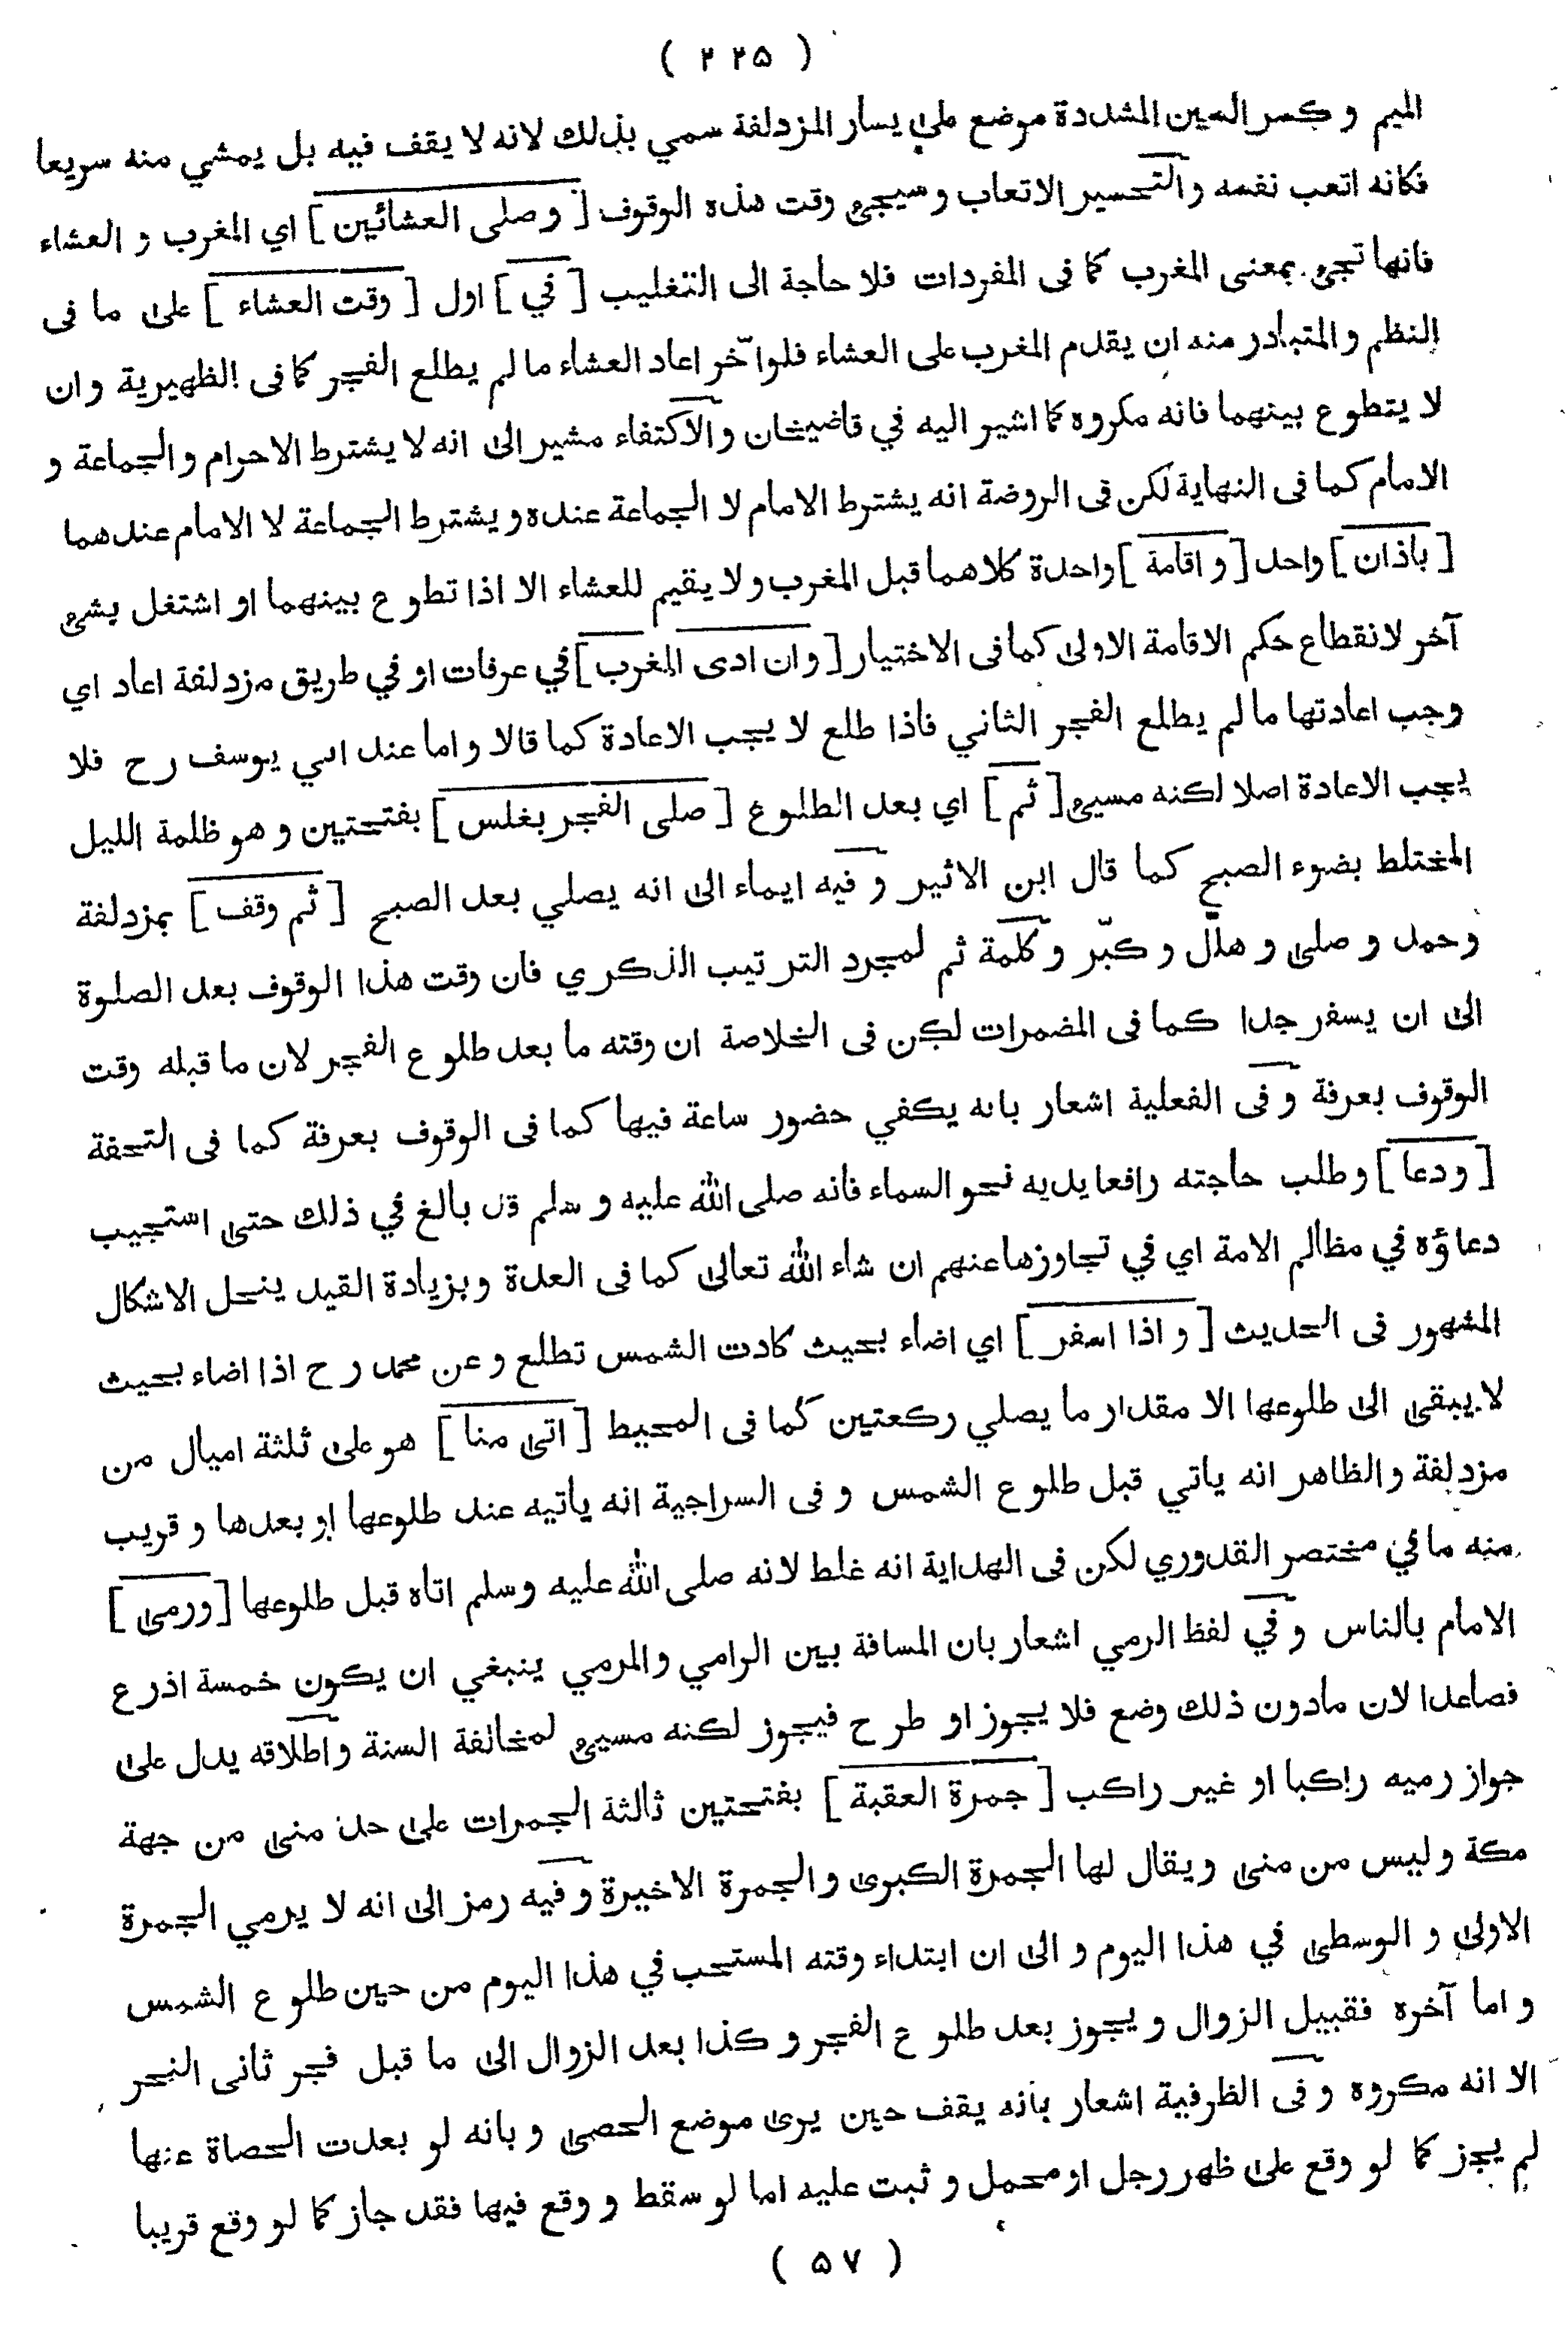 ( ٢٢٥ )
الميم و كسر السين المشددة موضع على يسار المزدلفة سمي بذلك لانه لا يقف فيه بل يمشي منه سريعا
فكانه اتعب نفسه والتحسير الاتعاب وسيجئ وقت هذه الوقوف [ وصلى العشائين ] اي المغرب و العشاء
فانها تجئ بمعنى المغرب كما فى المفردات فلا حاجة الى التغليب [ في ] اول [ وقت العشاء ] على ما فى
النظم و المتبادر منه ان يقدم المغرب على العشاء فلو اخّر اعاد العشاء ما لم يطلع الفجر كما فى الظهيرية و ان
لا يتطوع بينهما فانه مكروه كما اشير اليه في قاضيخان والاكتفاء مشير الى انه لا يشترط الاحرام و الجماعة و
الامام كما فى النهاية لكن فى الروضة انه يشترط الامام لا الجماعة عنده و يشترط الجماعة لا الامام عندهما
[ باذان ] واحد [ و اقامة ] واحدة كلاهما قبل المغرب و لا يقيم للعشاء الا اذا تطوع بينهما او اشتغل بشئ
آخر لانقطاع حكم الاقامة الاولى كما فى الاختيار [ وان ادى المغرب ] في عرفات او في طريق مزدلفة اعاد اي
وجب اعادتها ما لم يطلع الفجر الثاني فاذا طلع لا يجب الاعادة كما قالا و اما عند ابي يوسف رح فلا
يجب الاعادة اصلا لكنه مسيئ [ ثم ] اي بعد الطلوع [ صلى الفجر بغلس ] بفتحتين و هو ظلمة الليل
المختلط بضوء الصبح كما قال ابن الاثير و فيه ايماء الى انه يصلي بعد الصبح [ ثم وقف ] بمزدلفة
وحمد و صلى و هلّل و كبّر و كلمة ثم لمجرد الترتيب الذكري فان وقت هذا الوقوف بعد الصلوة
الى ان يسفر جدا كما فى المضمرات لكن فى الخلاصة ان وقته ما بعد طلوع الفجر لان ما قبله وقت
الوقوف بعرفة و فى الفعلية اشعار بانه يكفي حضور ساعة فيها كما فى الوقوف بعرفة كما فى التحفة
[ ودعا ] و طلب حاجته رافعا يديه نحو السماء فانه صلى الله عليه و سلم قد بالغ في ذلك حتى استجيب
دعاؤه في مظالم الامة اي في تجاوزها عنهم ان شاء الله تعالى كما فى العدة و بزيادة القيد ينحل الاشكال
المشهور فى الحديث [ و اذا اسفر ] اي اضاء بحيث كادت الشمس تطلع و عن محمد رح اذا اضاء بحيث
لا يبقى الى طلوعها الا مقدار ما يصلي ركعتين كما فى المحيط [ اتى منا ] هو على ثلثة اميال من
مزدلفة و الظاهر انه ياتي قبل طلوع الشمس و فى السراجية انه ياتيه عند طلوعها او بعدها و قريب
منه ما في مختصر القدوري لكن فى الهداية انه غلط لانه صلى الله عليه وسلم اتاه قبل طلوعها [ ورمى ]
الامام بالناس و في لفظ الرمي اشعار بان المسافة بين الرامي والمرمي ينبغي ان يكون خمسة اذرع
فصاعدا لان مادون ذلك وضع فلا يجوز او طرح فيجوز لكنه مسيئ لمخالفة السنة و اطلاقه يدل على
جواز رميه راكبا او غير راكب [ جمرة العقبة ] بفتحتين ثالثة الجمرات على حد منى من جهة
مكة و ليس من منى و يقال لها الجمرة الكبرى و الجمرة الاخيرة و فيه رمز الى انه لا يرمي الجمرة
الاولى و الوسطى في هذا اليوم و الى ان ابتداء وقته المستحب في هذا اليوم من حين طلوع الشمس
و اما آخره فقبيل الزوال و يجوز بعد طلوع الفجر و كذا بعد الزوال الى ما قبل فجر ثانى النحر
الا انه مكروه و فى الظرفية اشعار بانه يقف حين يرى موضع الحصى و بانه لو بعدت الحصاة عنها
لم يجز كما لو وقع على ظهر رجل او محمل و ثبت عليه اما لو سقط و وقع فيها فقد جاز كما لو وقع قريبا
( ٥٧ )